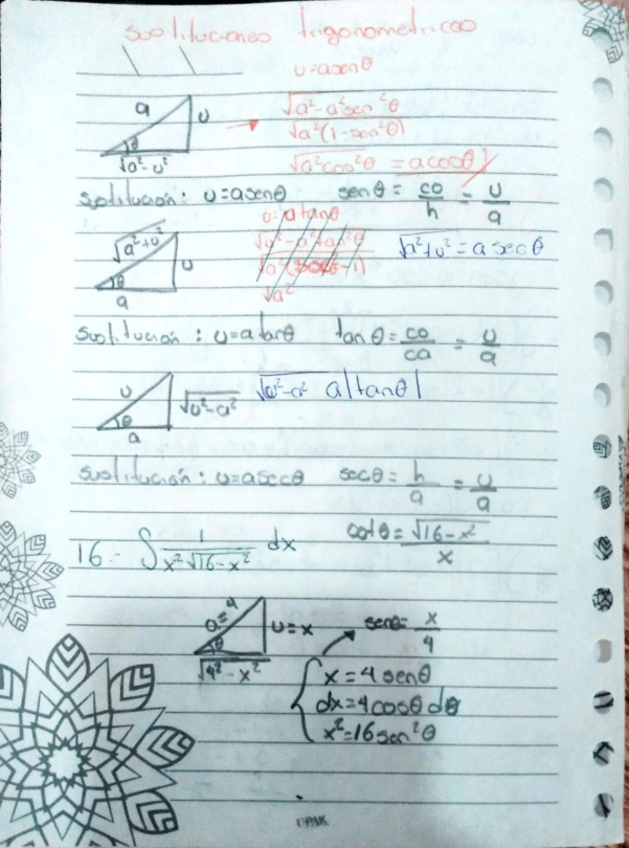 sustituciones trigonometricas
u=asenθ
a
u
θ
√a²-u²
√a²-a²sen²θ
√a²(1-sen²θ)
√a²cos²θ = acosθ
sustitución: u=asenθ senθ = co/h = u/a
u=atanθ
√a²+u²
u
θ
a
√a²+u² = a secθ
√a²
sustitución: u=atanθ tanθ = co/ca = u/a
u
√u²-a²
θ
a
√u²-a² a|tanθ|
sustitución: u=asecθ secθ = h/a = u/a
16.- ∫ 1/x²√16-x² dx cotθ = √16-x²/x
a=4
u=x
θ
√4²-x²
senθ= x/4
x=4senθ
dx=4cosθ dθ
x²=16sen²θ